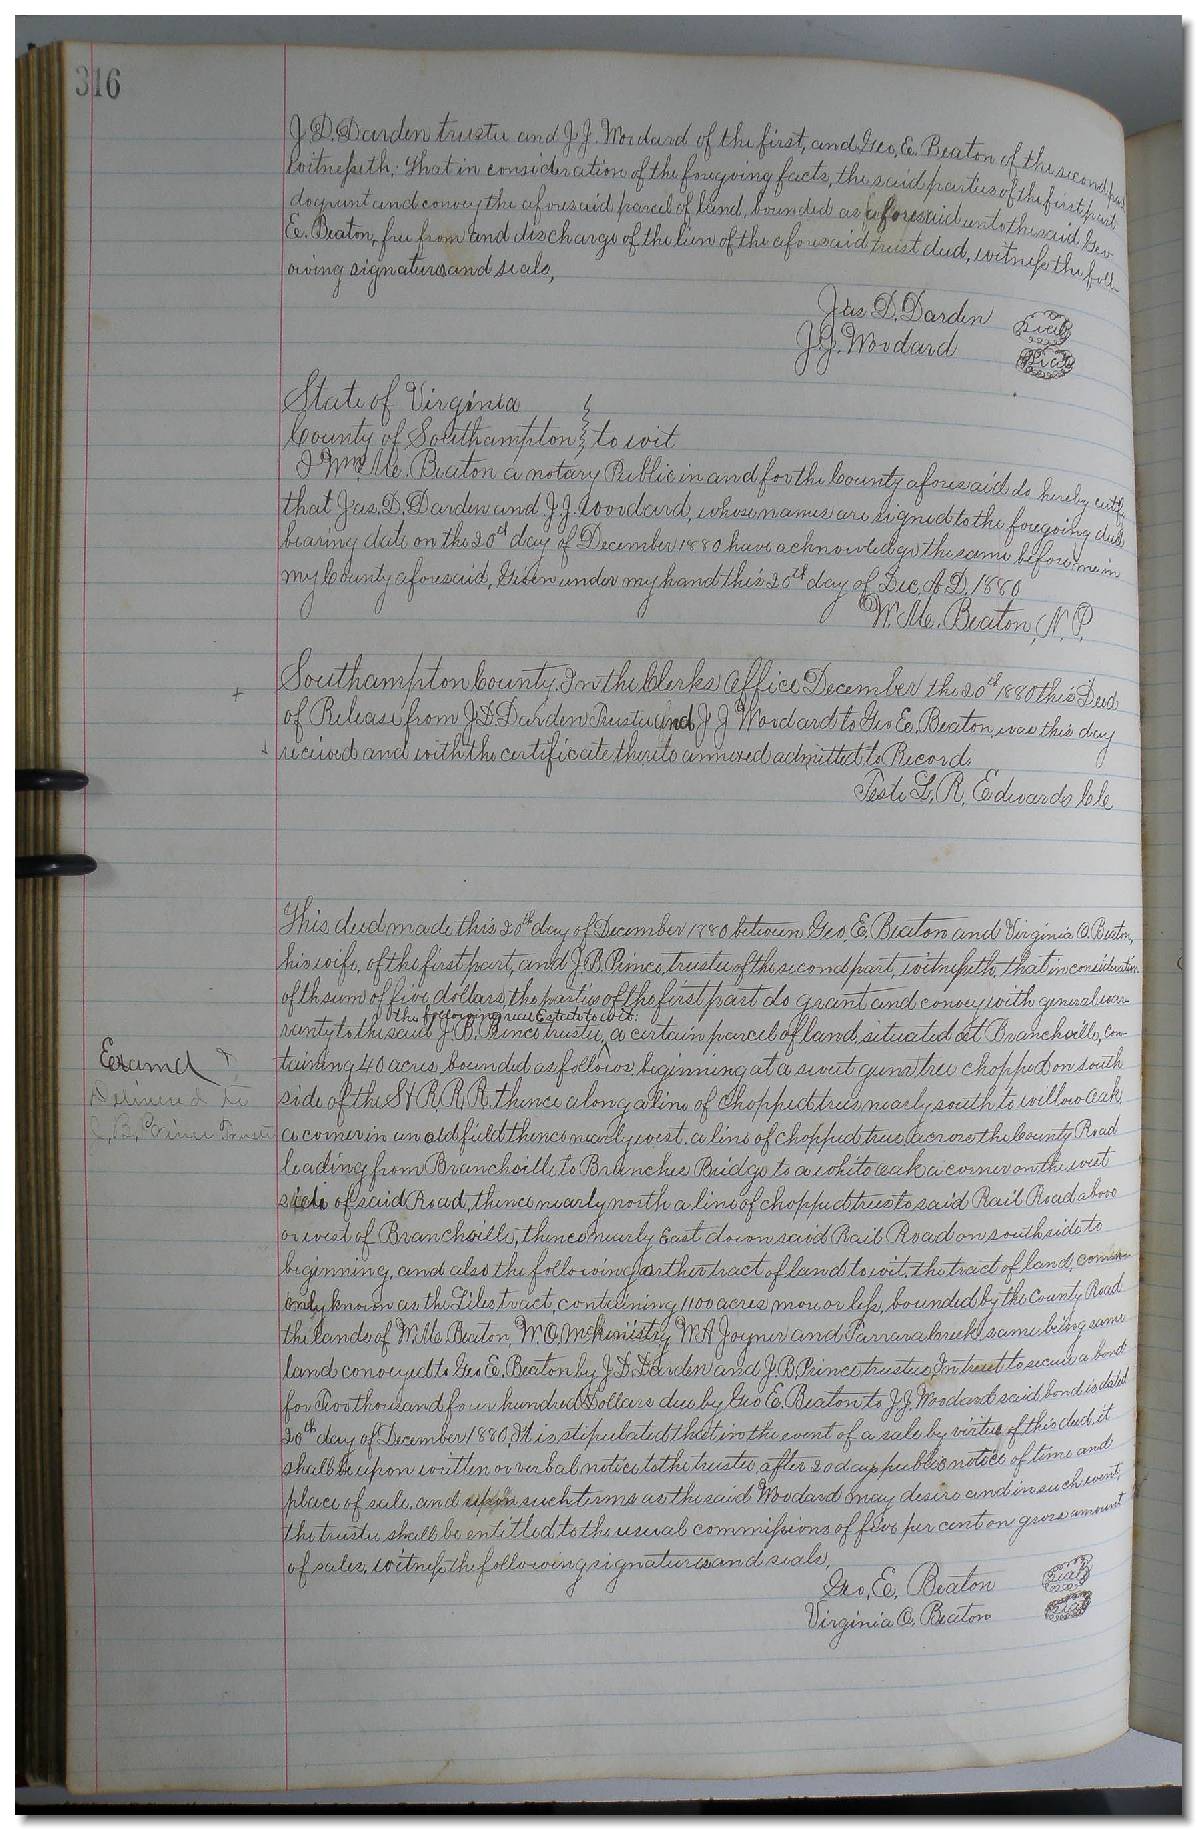 316
J. D. Darden trustee and J. J. Woodard of the first, and Geo. E. Beaton of the second part
Witnesseth: That in consideration of the foregoing facts, the said parties of the first part
do grant and convey the aforesaid parcel of land, bounded as aforesaid unto the said Geo
E. Beaton, free from and discharge of the lien of the aforesaid trust deed, witness the foll-
owing signatures and seals,
Jas D. Darden Seal
J. J. Woodard Seal
State of Virginia
County of Southampton to wit
I Wm. Mc. Beaton a notary Public in and for the County aforesaid do hereby certify
that Jas. D. Darden and J. J. Woodard, whose names are signed to the foregoing deed
bearing date on the 20th day of December 1880 have acknowledge the same before me in
my County aforesaid, Given under my hand this 20th day of Dec. A. D. 1880
W. Mc. Beaton, N. P.
Southampton County. In the Clerks Office December the 20th 1880 this Deed
of Release from J. D. Darden Trustee and J J Woodard to Geo E. Beaton, was this day
received and with the certificate thereto annexed admitted to Record.
Teste L. R. Edwards Clk
This deed made this 20th day of December 1880 between Geo. E. Beaton and Virginia O. Beaton,
his wife, of the first part, and J. B. Prince, trustee of the second part, witnesseth, that in consideration
of the sum of five dollars, the parties of the first part do grant and convey with general war-
the following real Estate to wit:
ranty to the said J. B. Prince trustee, a certain parcel of land situated at Branchville, con-
taining 40 acres bounded as follows, beginning at a sweet gum tree chopped on south
side of the S & R. R. R. thence along a line of chopped trees nearly south to willow oak
a corner in an old field thence nearly west, a line of chopped trees across the County Road
leading from Branchville to Branches Bridge to a white oak a corner on the west
side of said Road, thence nearly north a line of chopped trees to said Rail Road above
or west of Branchville, thence nearly East down said Rail Road on south side to
beginning, and also the following other tract of land to wit, the tract of land, comm-
only known as the Liles tract, containing 1100 acres, more or less, bounded by the County Road
the lands of W. Mc. Beaton, W. O, McKinistry W. A Joyner and Tarrara Creek, same being same
land conveyed to Geo E. Beaton by J. D. Darden and J. B. Prince, trustees, In trust to secure a bond
for Two thousand four hundred Dollars due by Geo E. Beaton to J. J. Woodard said bond is dated
20th day of December 1880, It is stipulated that in the event of a sale by virtue of this deed, it
shall be upon written or verbal notice to the trustee, after 20 days public notice of time and
place of sale, and upon such terms as the said Woodard may desire and in such event,
the trustee shall be entitled to the usual commissions of five per cent on gross amount
of sales, witness the following signatures and seals,
Geo, E, Beaton Seal
Virginia O. Beaton Seal
Examd
Delivered to
J. B. Prince Trustee